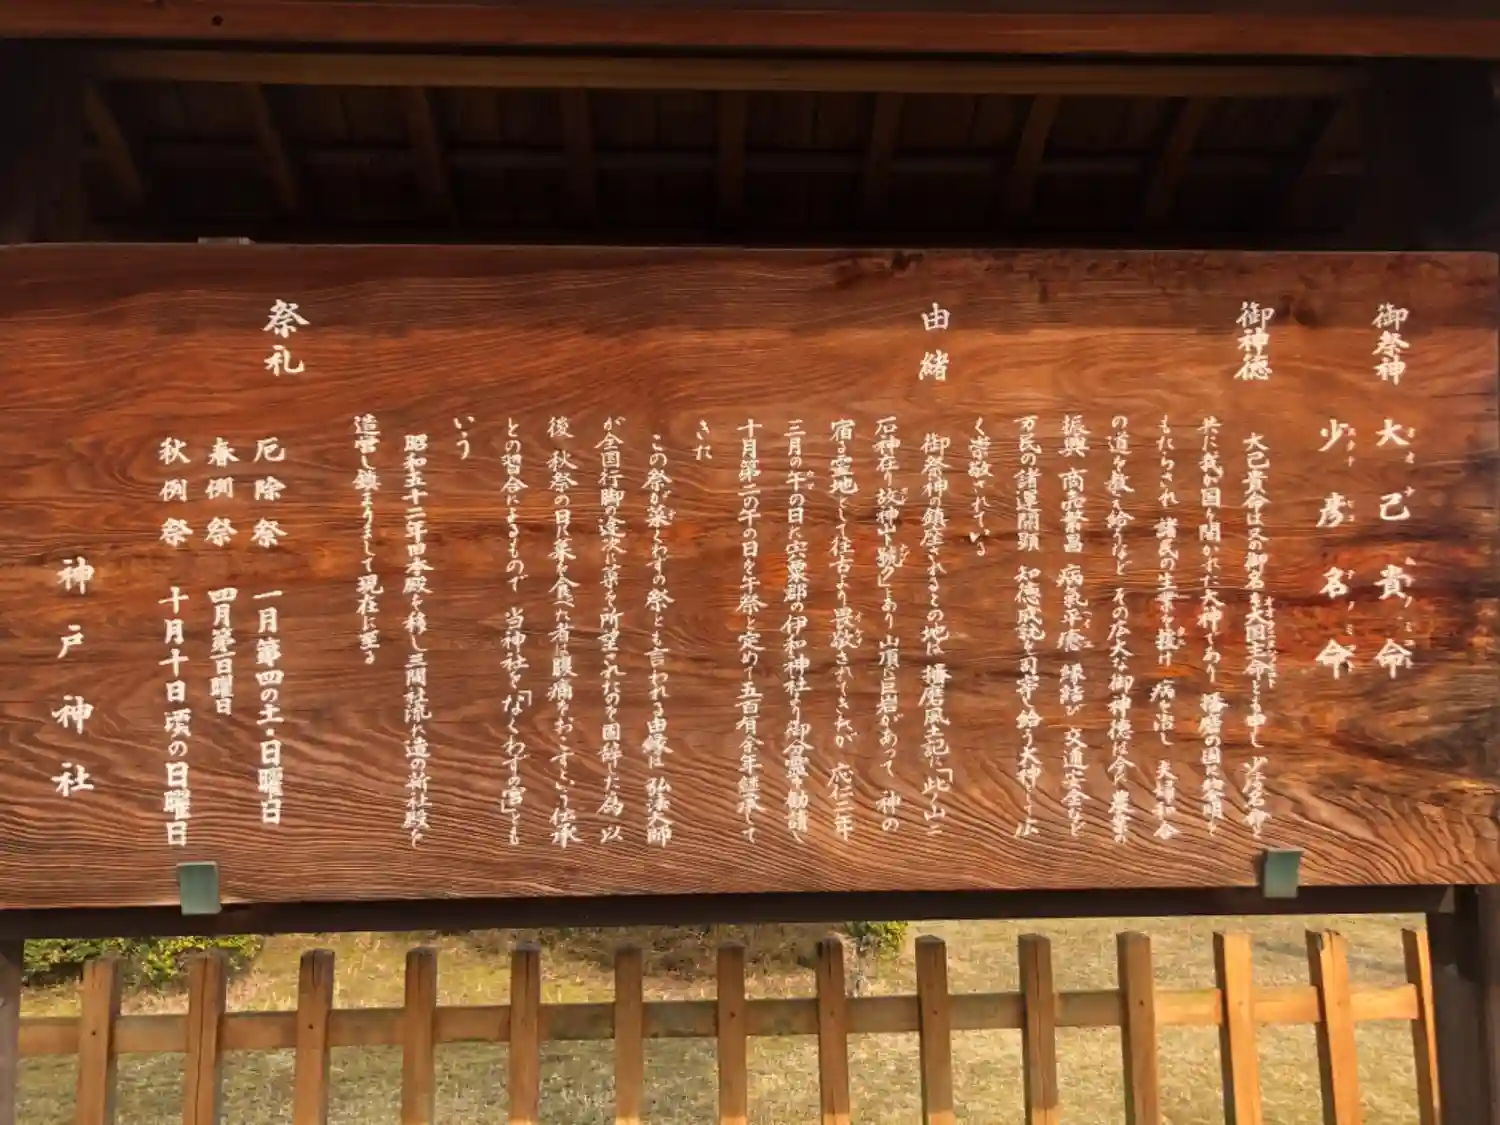 御祭神 大己貴命
少彦名命
御神徳
大己貴命は又の御名を大国主命とも申し 少彦名命と
共に我が国を開かれた大神であり 播磨の国に
もたらされ 諸民の生業を授け 病を治し 夫婦和合
の道を教え給うなど その広大な御神徳は 農業の
振興 商売繁昌 病気平癒 縁結び 交通安全など
万民の諸運開顕 知徳成就を司宰し給う大神として広
く崇敬されている
由緒
御祭神の鎮座されるこの地は 播磨風土記に「此ノ山ニ
石神在リ故神山ト号ク」とあり 山頂に巨岩があって 神の
宿る霊地として往古より畏敬されてきたが 応仁二年
三月の午の日に宍粟郡の伊和神社より御分霊を勧請し
十月第二の午の日を午祭と定めて五百有余年継承して
きた
この祭が菜くわずの祭とも言われる由縁は 弘法大師
が全国行脚の途次に菜を所望されたのを固辞した為 以
後 秋祭の日に菜を食べた者は腹痛をおこすという伝承
との習合によるもので 当神社を「なくわずの宮」とも
いう
昭和五十二年旧本殿を移し三間社流れ造の新社殿を
造営し鎮まりまして現在に至る
祭礼
厄除祭 一月第四の土・日曜日
春例祭 四月第一日曜日
秋例祭 十月十日頃の日曜日
神戸神社